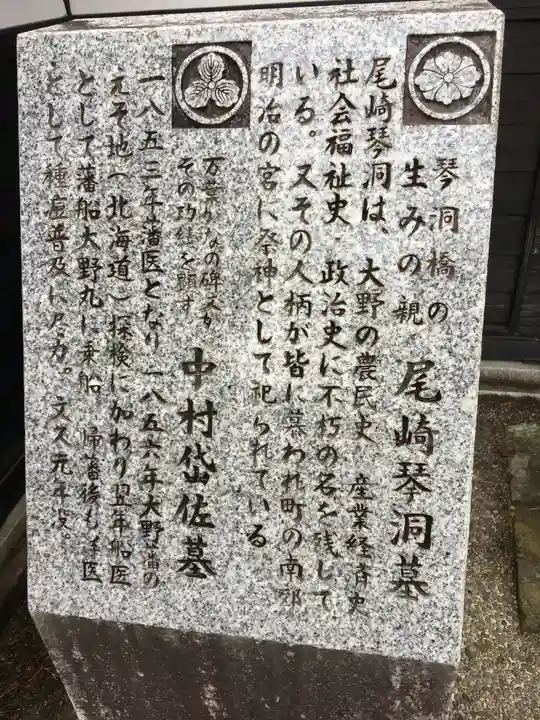 琴洞橋の
生みの親
尾崎琴洞墓
尾崎琴洞は、大野の農民史 産業経済史
社会福祉史 政治史に不朽の名を残して
いる。又その人柄が皆に慕われ町の南部
明治の宮に祭神として祀られている
万葉がなの碑文が
その功績を顕す
中村岱佐墓
一八五三年藩医となり一八五六年大野藩の
えぞ地(北海道)探検に加わり翌年船医
として藩船大野丸に乗船 帰藩後も 医
として種痘普及に尽力。文久元年没。